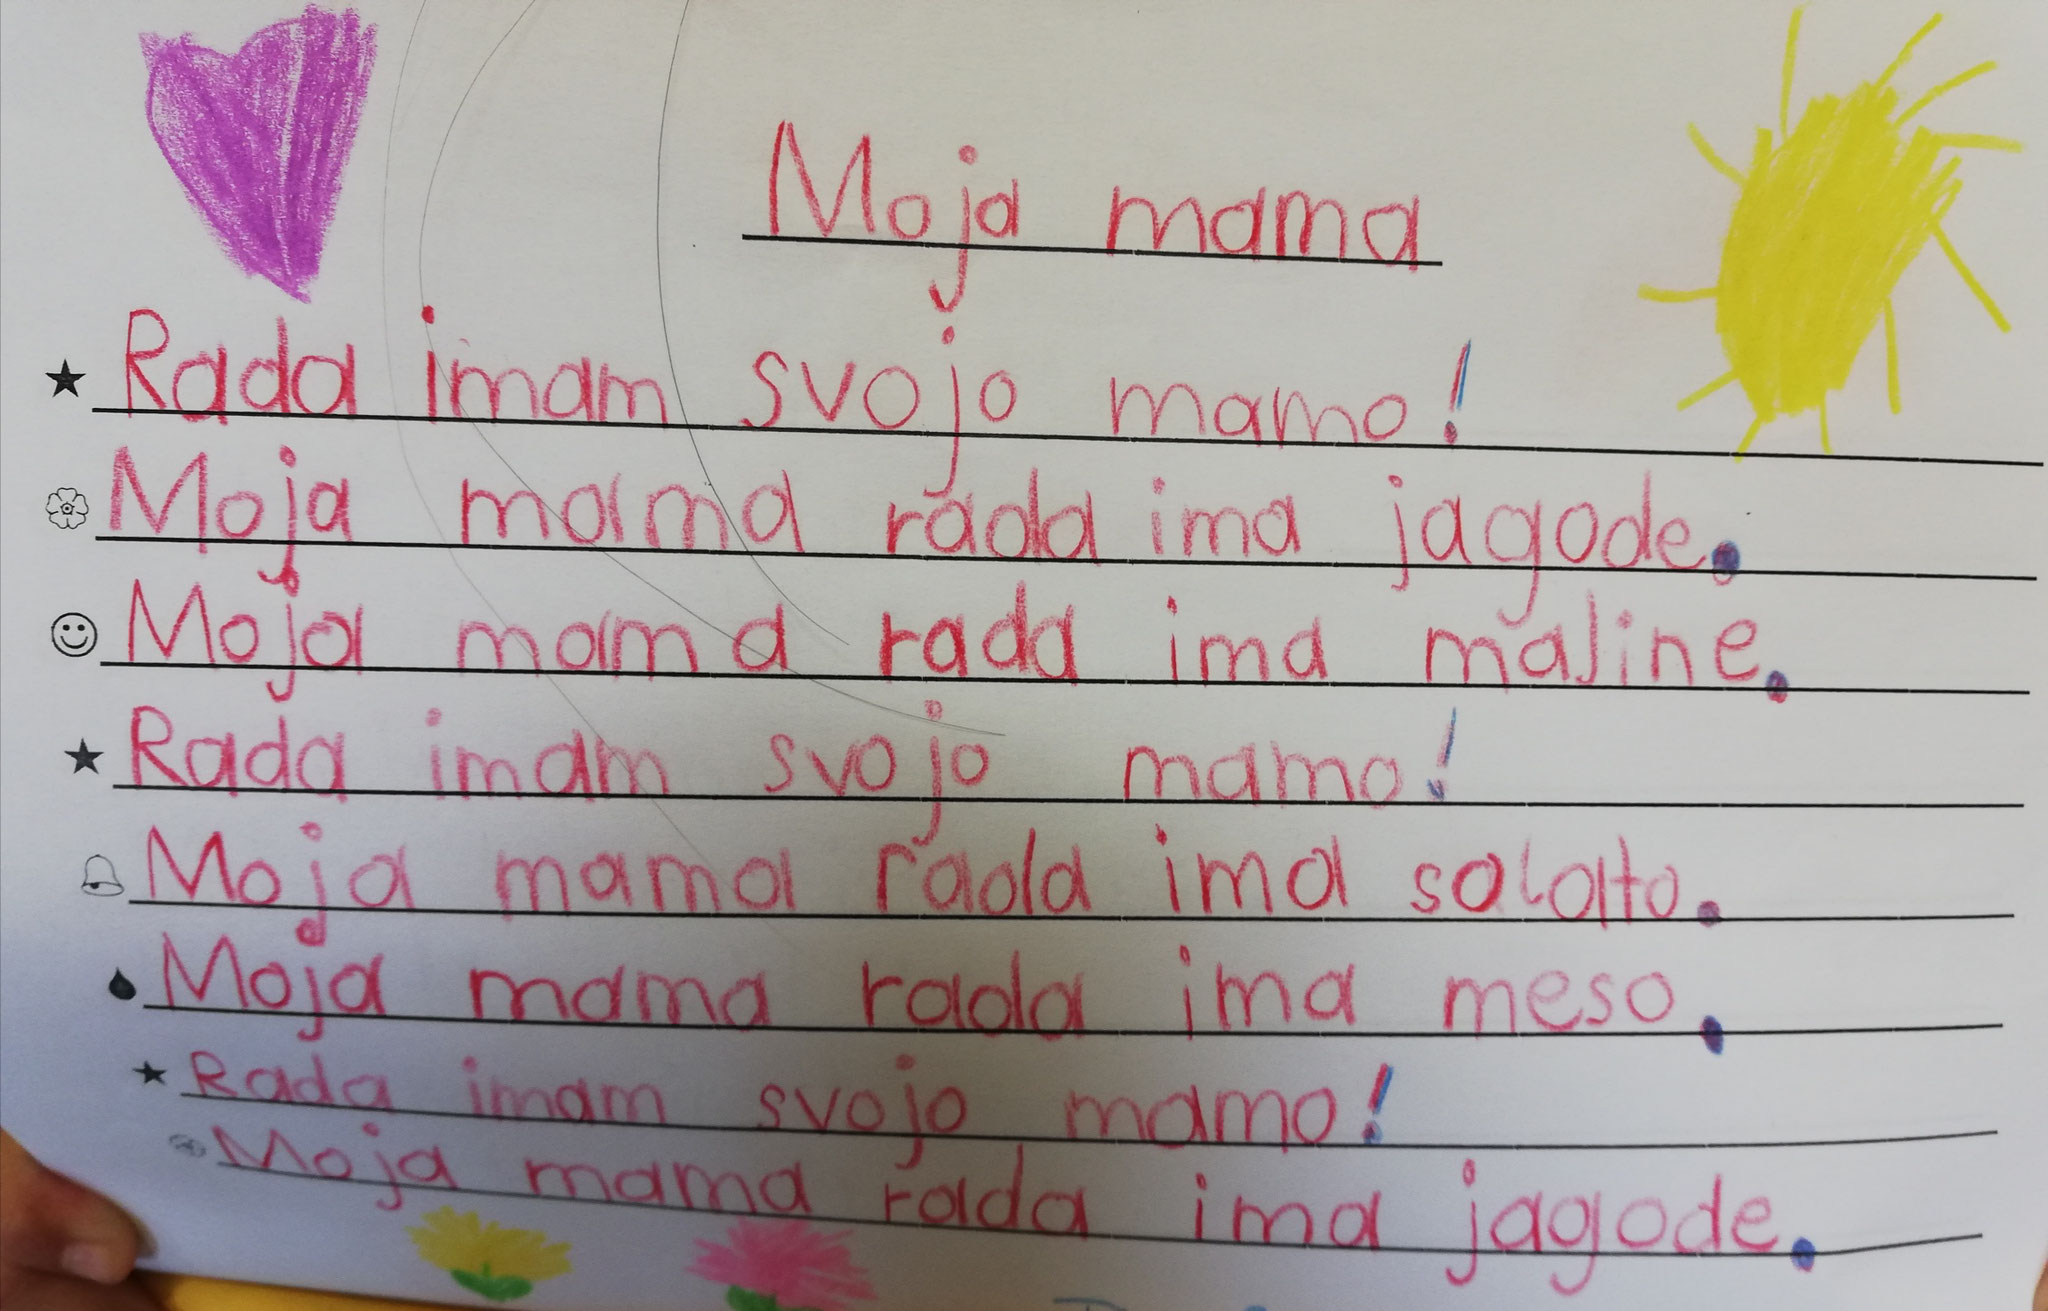 Moja mama
Rada imam svojo mamo!
Moja mama rada ima jagode.
Moja mama rada ima maline.
Rada imam svojo mamo!
Moja mama rada ima salato.
Moja mama rada ima meso.
Rada imam svojo mamo!
Moja mama rada ima jagode.